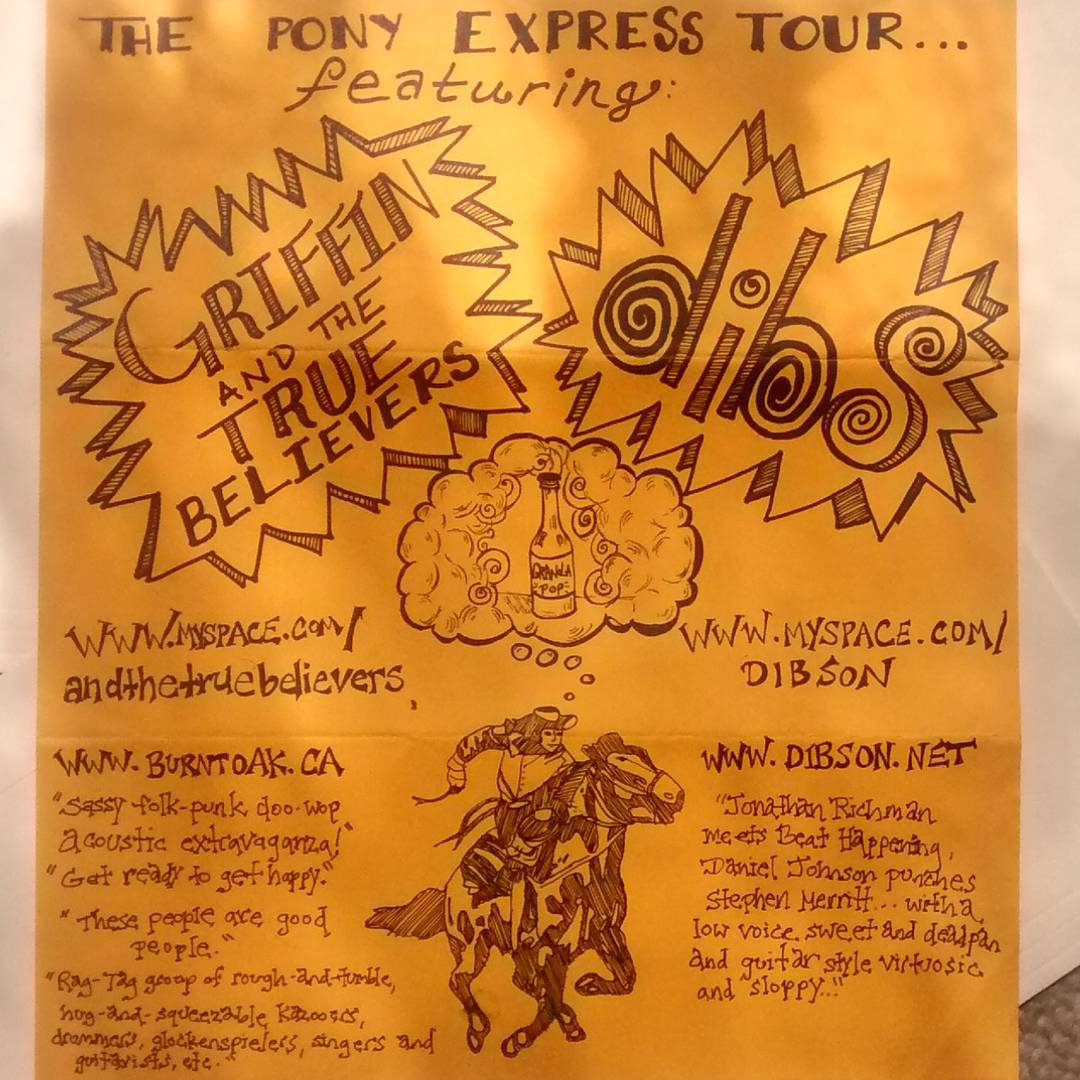 THE PONY EXPRESS TOUR...
featuring:
GRIFFIN
AND THE
TRUE
BELIEVERS
dibs
GRANOLA
POP
WWW.MYSPACE.COM/
andthetruebelievers
WWW.BURNTOAK.CA
"Sassy folk-punk doo-wop
acoustic extravaganza!"
"Get ready to get happy."
"These people are good
people."
"Rag-Tag group of rough-and-tumble,
hug-and-squeezable kazooers,
drummers, glockenspielers, singers and
guitarists, etc."
WWW.MYSPACE.COM/
DIBSON
WWW.DIBSON.NET
"Jonathan Richman
meets Beat Happening,
Daniel Johnson punches
Stephen Merritt... with a
low voice sweet and deadpan
and guitar style virtuosic
and sloppy..."